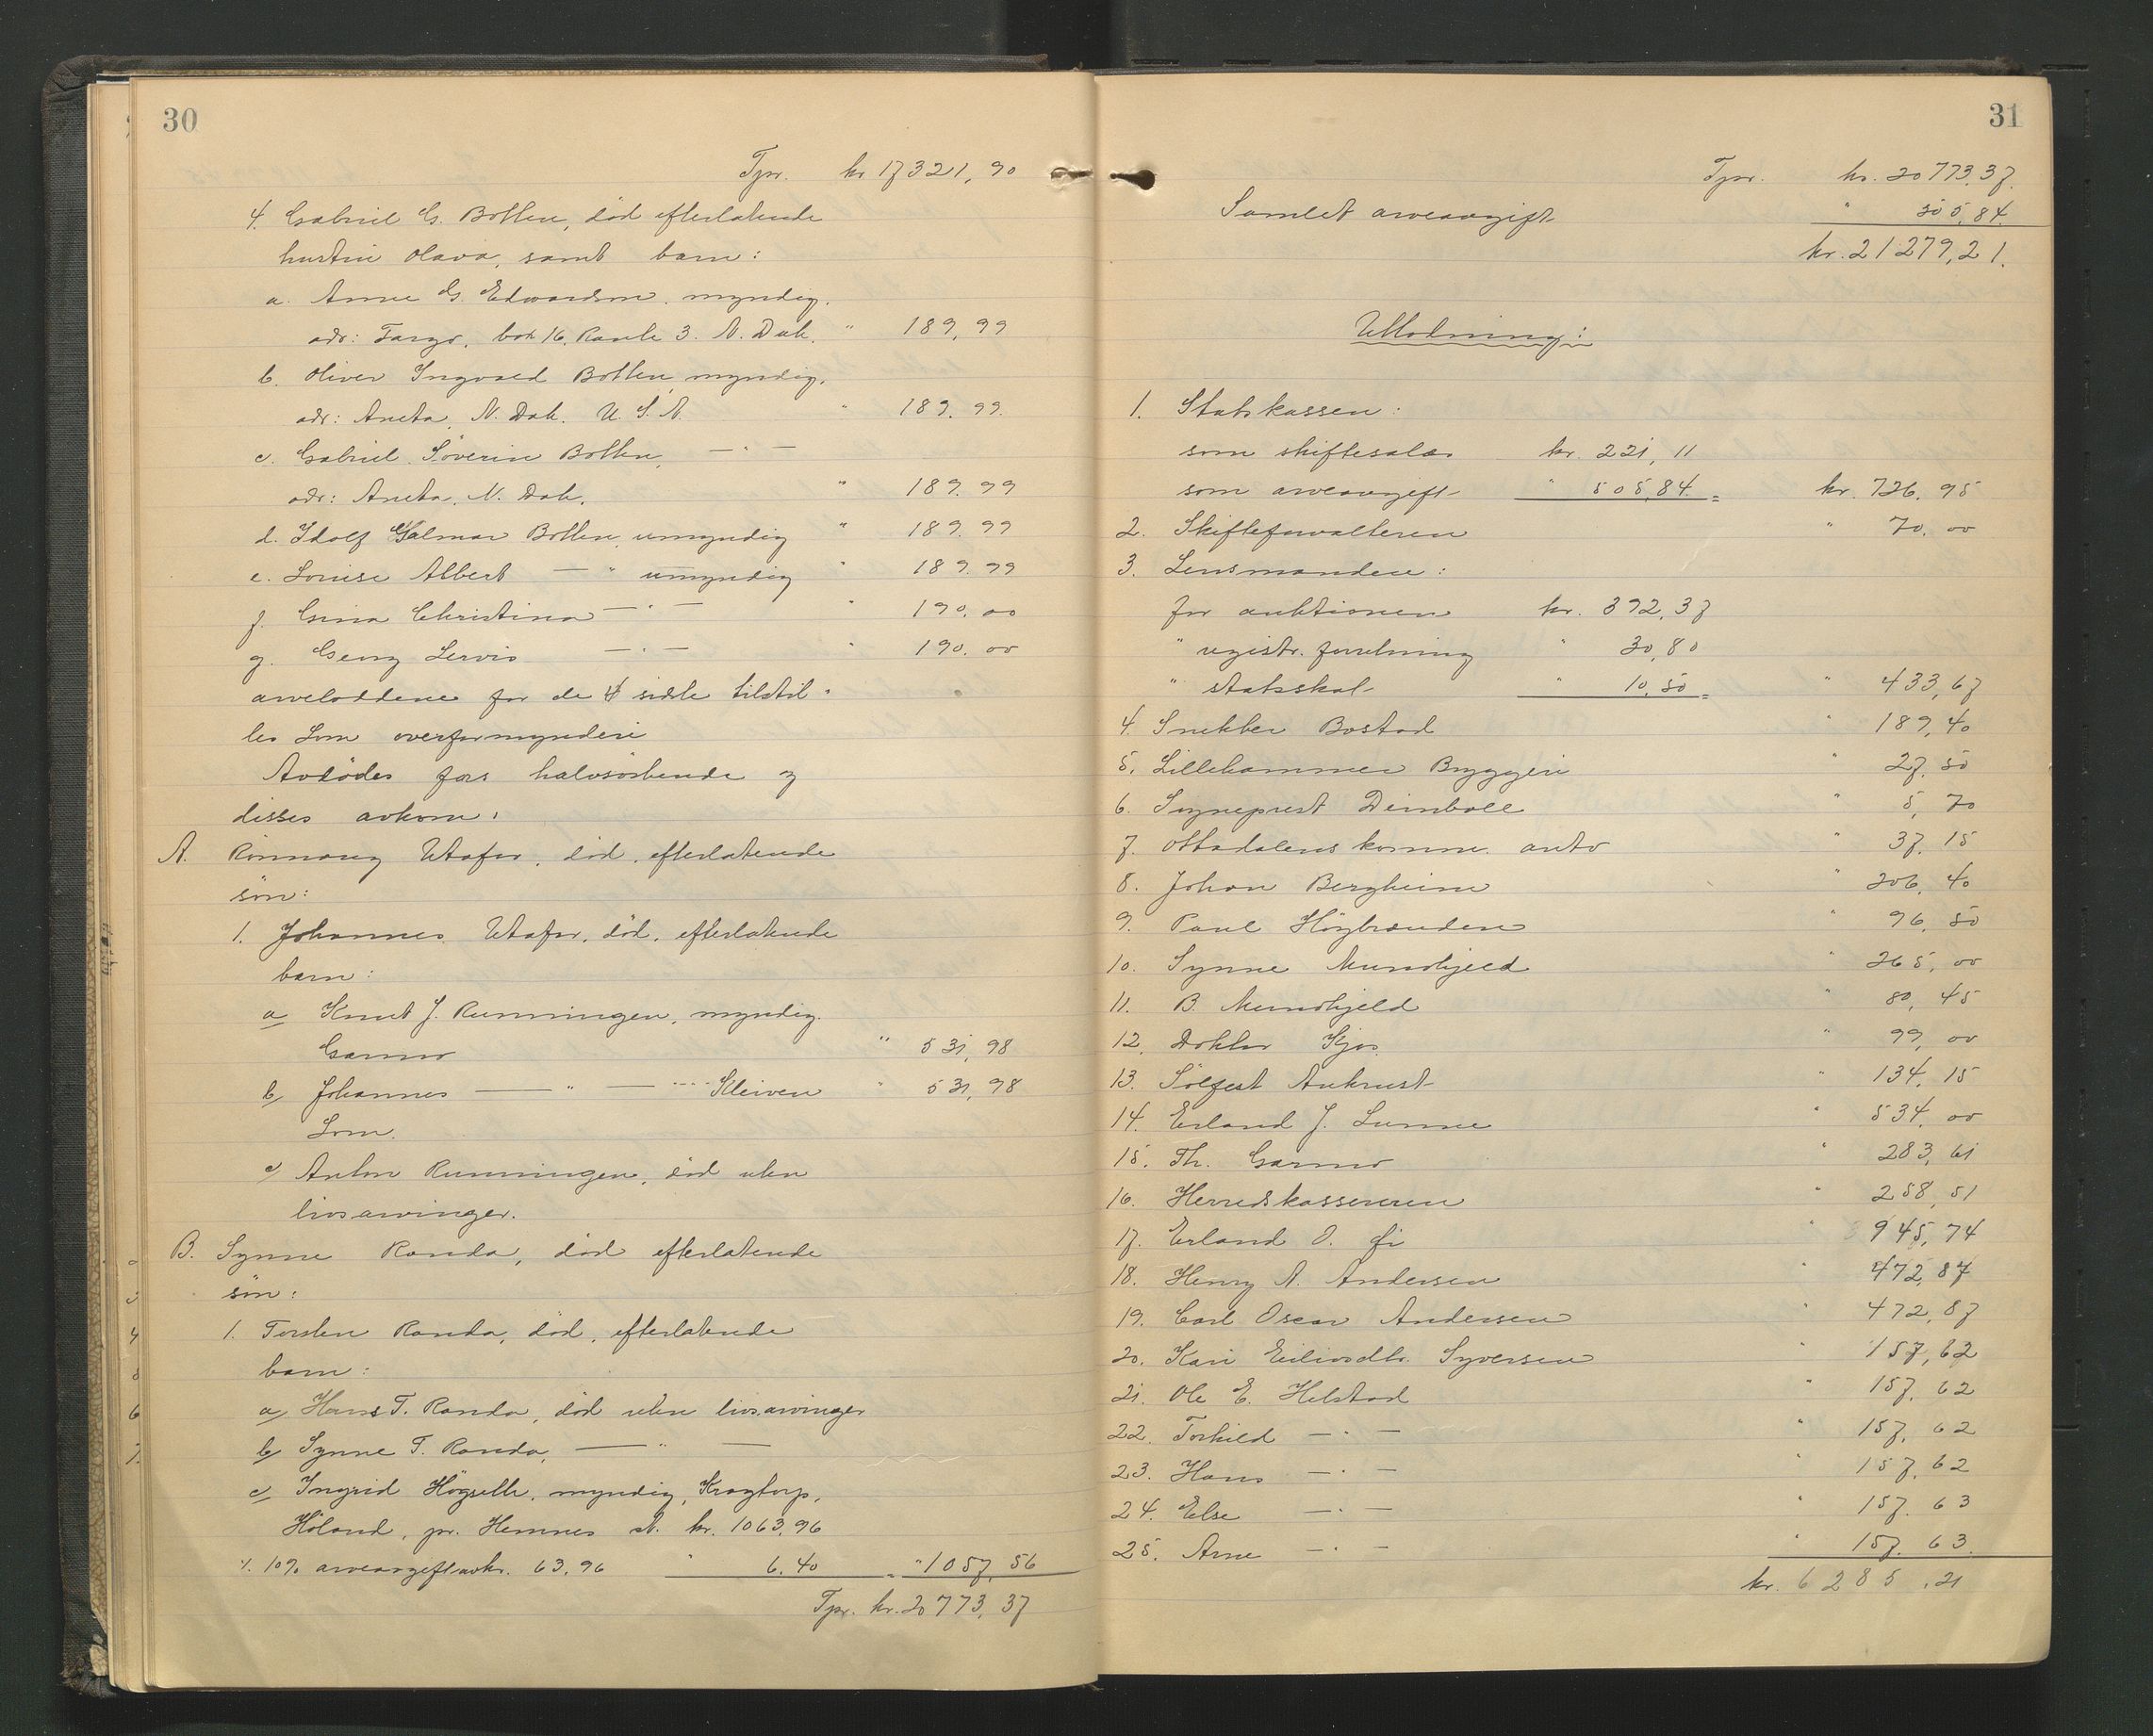 30
Tpr. kr 17321,90
4. Gabriel G. Botten, död efterlatende
hustru Olava, samt barn:
a. Anne G. Edwardson, myndig.
adr: Fargo, box 16, Route 3. N. Dak. " 189,99
b. Oliver Ingvald Botten, myndig.
adr: Aneta, N. Dak. U. S. A. " 189.99.
c. Gabriel Söverin Botten, — " —
adr: Aneta, N. Dak. " 189.99
d. Idolf Hjalmar Botten, umyndig " 189.99
e. Louise Albert — " umyndig " 189.99
f. Gina Christina — " — " 190.00
g. Georg Lervis — " — " 190.00
arveloddene for de 4 sidste tilstil-
les Lom overformynderi
Avdödes fars halvsöskende og
disses avkom:
A. Rönnaug Utafor, död, efterlatende
sön:
1. Johannes Utafor, död, efterlatende
barn:
a Knut J. Runningen, myndig.
Garmo " 531,98
b, Johannes — " — Kleiven " 531,98
Lom.
c, Anton Runningen, död uten
livsarvinger.
B. Synne Randa, död efterlatende
sön:
1. Torsten Randa, död, efterlatende
barn:
a, Hans T. Randa, död uten livsarvinger
b, Synne T. Randa, — " —
c, Ingrid Högsetle, myndig, Kragtorp,
Höland, pr. Hemnes st. kr. 1063,96
÷ 10% arveavgift av kr. 63.96 " 6.40 = " 1057,56
Tpr. kr. 20773,37
31
Tpr. kr. 20773.37.
Samlet arveavgift " 505,84.
kr. 21279,21.
Utlodning:
1. Statskassen:
som skiftesalær kr. 221,11
som arveavgift " 505,84. = kr. 726.95
2. Skifteforvalteren " 70.00
3. Lensmanden:
for auktionen kr. 392,37
" registr. forretning " 30,80
" statsskat " 10,50 = " 433,67
4. Snekker Bostad " 189,40
5. Lillehammer Bryggeri " 27.50
6. Sogneprest Deinboll " 5,70
7. Ottadalens komm. auto " 37.15
8. Johan Bergheim " 206.40
9. Paul Högbranden " 96,50
10. Synne Mundhjeld " 265,00
11. B. Mundhjeld " 80,45
12. Doktor Kjos " 99,00
13. Sölfest Aukrust " 134.15
14. Erland J. Lunne " 534.00
15. Th. Garmo " 283,61
16. Herredskassereren " 258,51
17. Erland O. Fi " 945,74
18. Henry A. Andersen " 472,87
19. Carl Oscar Andersen " 472,87
20. Kari Eilivsdtr. Syversen " 157,62
21. Ole E. Helstad " 157.62
22. Torkild — " — " 157.62
23. Hans — " — " 157.62
24. Else — " — " 157.63
25. Arne — " — " 157.63.
kr. 6285,21